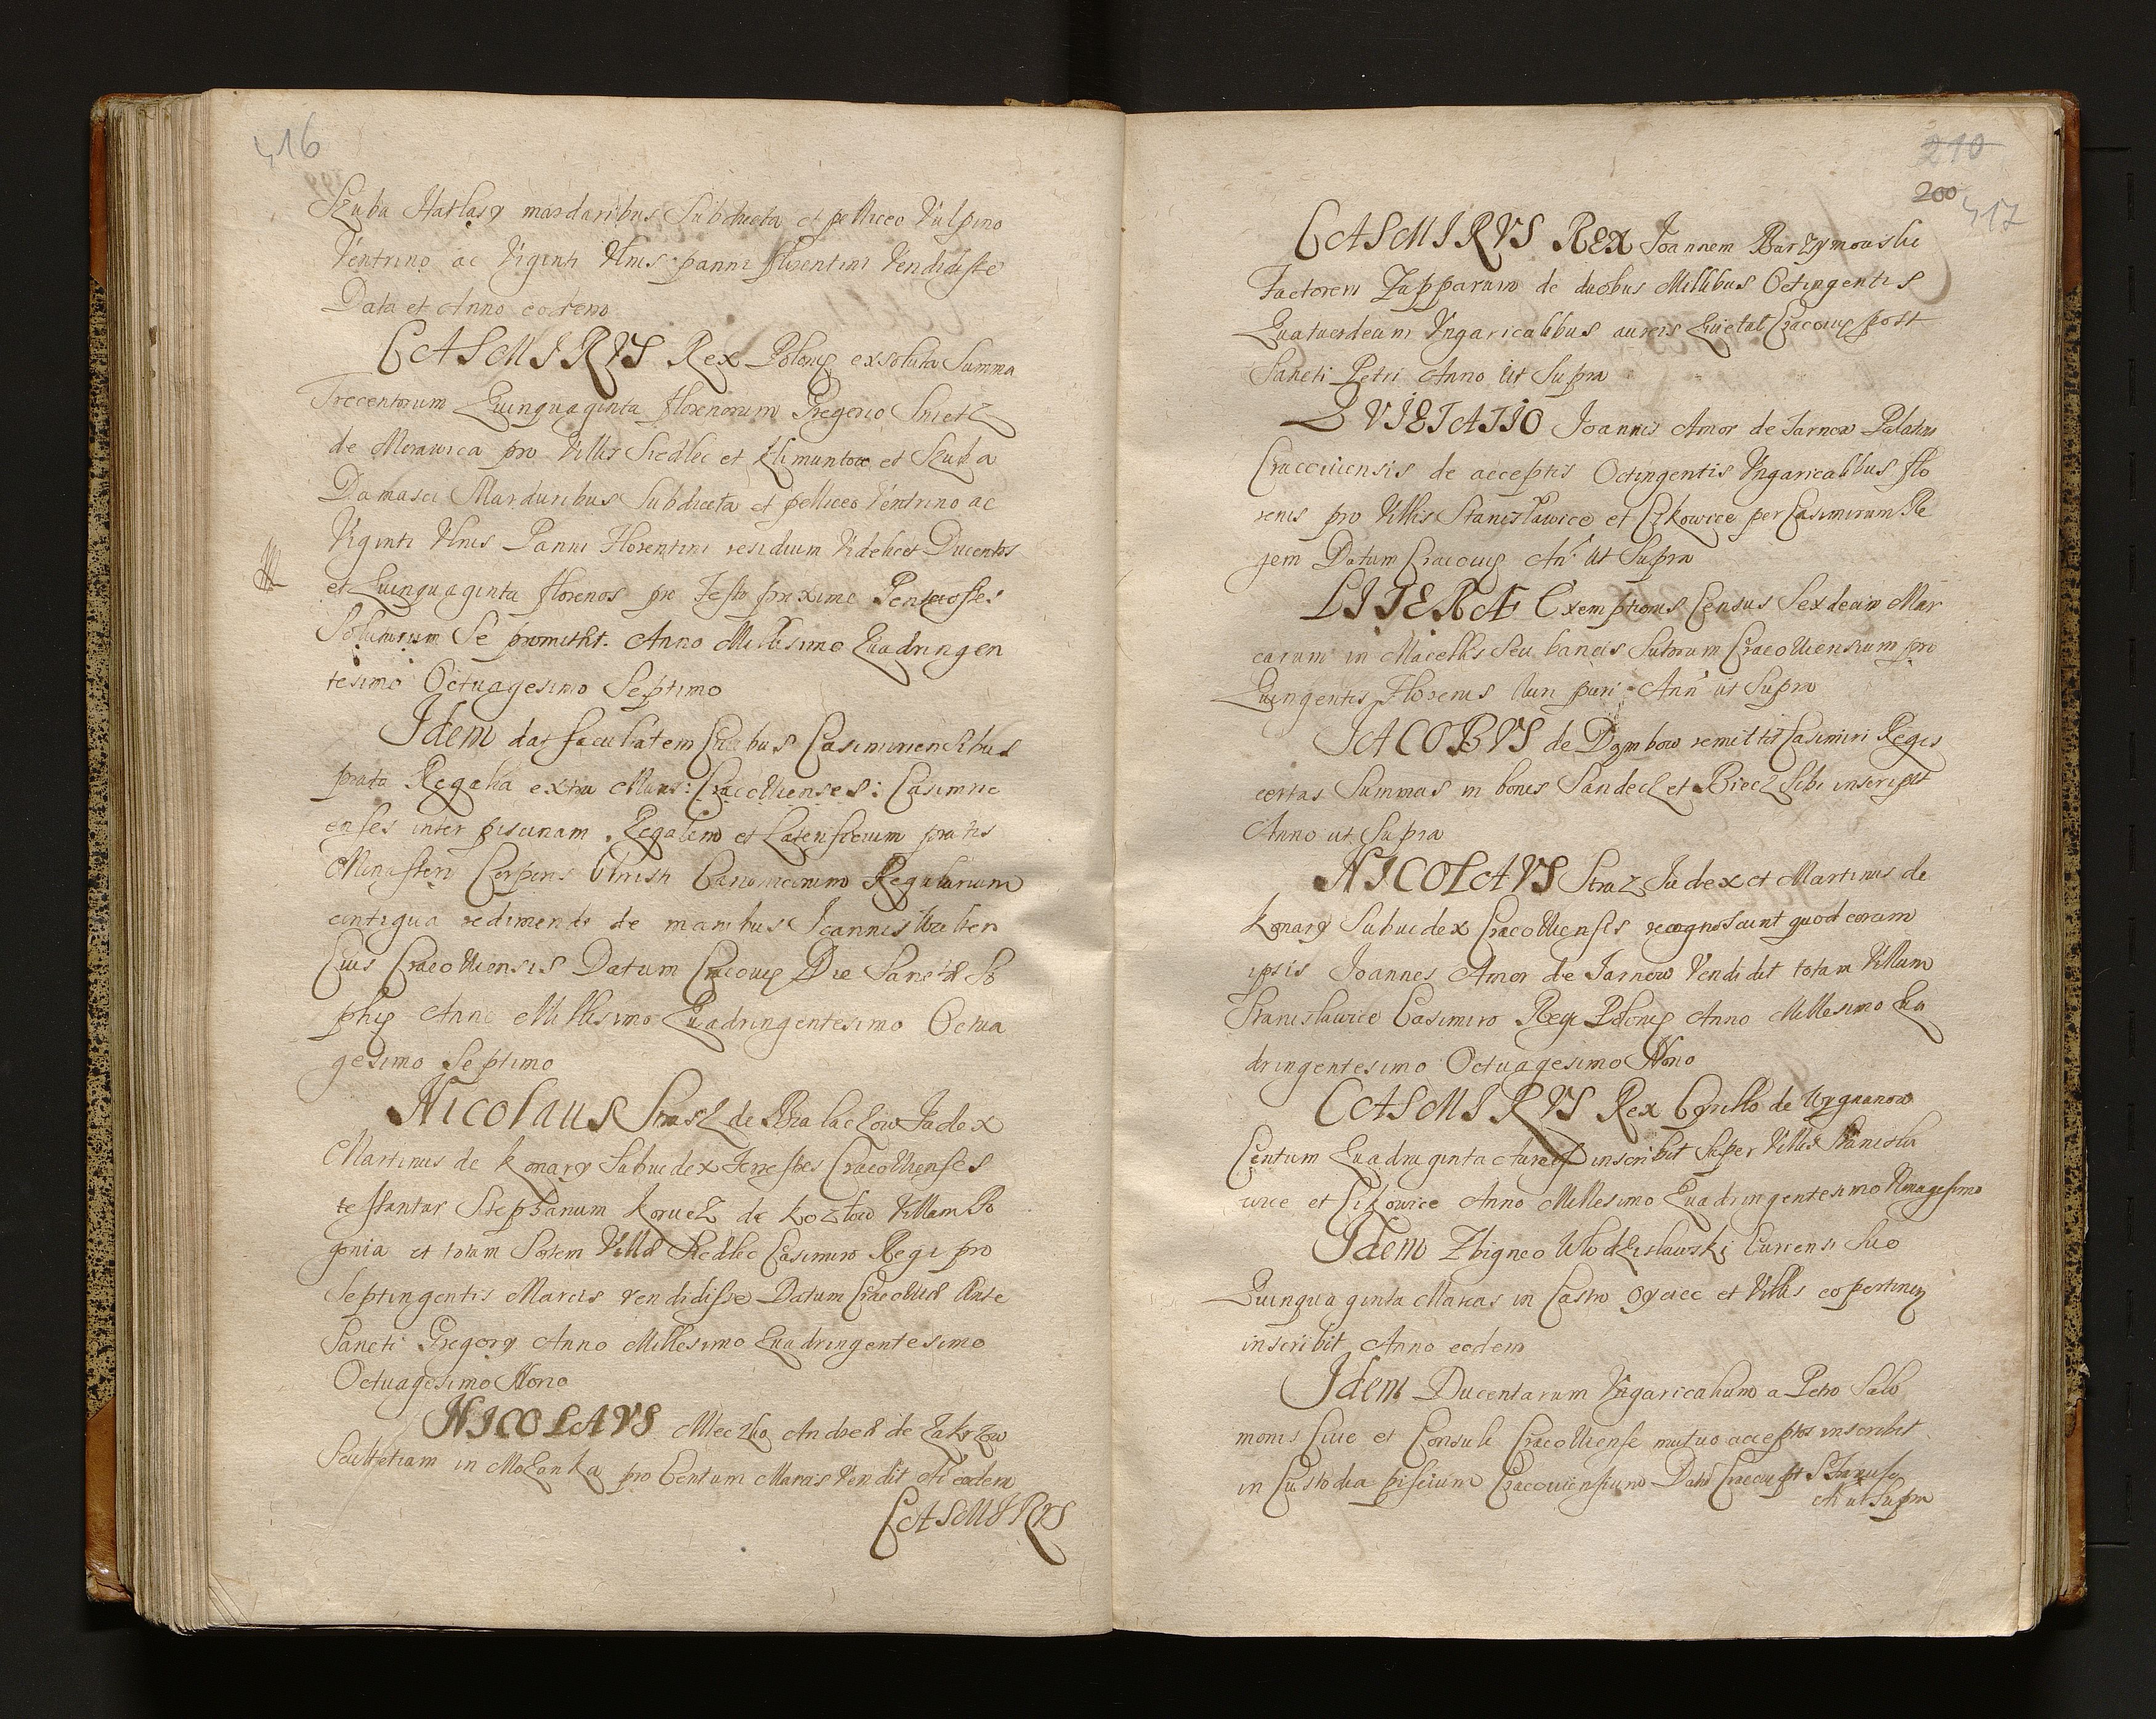 416
Szuba Hatlasy mardaribus Subducta et pelliceo Vulpino
Ventrino ac Viginti Ulnis panni florentini Vendidisse
Data et Anno eodem
CASMIRVS Rex Polonię exsoluta Summa
Trecentorum Quinquaginta florenorum Gregerio
de Morawica pro Villis Siedlec et Klimuntow et Szuba
Damasci Marduribus Subducta et pelliceo Ventrino ac
Viginti Ulnis Panni Florentini residuum Videlicet Ducentos
et Quinquaginta florenos pro Festo proxime Pentecostes
Soluturum Se promittit. Anno Millesimo Quadringen
tesimo Octuagesimo Septimo
Idem dat facultatem Ciuibus Casimiriensibus
prata Regalia extra Muros: Cracouienses: Casimiri
enses inter piscinam Regalem et Laterificium pratis
Monasterii Corporis Christi Canonicorum Regularium
antiqua redimendi de manibus Joannis
Ciuis Cracouiensis Datum Cracouię Die Sanctę So
phię Anno Millesimo Quadringentesimo Octua
gesimo Septimo
Nicolaus Strasz de Bialaczow Judex
Martinus de Konary Subiudex Terrestres Cracouienses
testantur Stephanum de Kozlow Villam Po
gonia et totam Sortem Villę Siedlec Casimiro Regi pro
Septingentis Marcis vendidisse Datum Cracouię Ante
Sancti Gregory Anno Millesimo Quadringentesimo
Octuagesimo Nono
NICOLAVS Andreę de Zakrzow
Scultetiam in pro Centum Marcis Vendit A eodem
CASMIRVS
210
200
417
CASMIRVS REX Joannem Barzymowski
Factorem Zupparum de duobus Millibus Octingentis
Quatuordecim Vngaricalibus aureis Quietat Cracouię post
Sancti Petri Anno Ut Supra
QVIETATIO Joannis Amor de Tarnow Palatini
Cracouiensis de acceptis Octingentis Vngaricalibus flo
renis pro Villis Stanislawice et Cikowice per Casimirum Re
gem Datum Cracouię An: Ut Supra
LITERAE Exemptionis Census Sexdecim Mar
carum in Macellis Seu bancis Sutorum Cracouiensium pro
Quingentis Florenis Auri puri Ann ut Supra
JACOBVS de Dembow remittit Casimiri Regis
certas Summas in bonis Sandecz et Biecz Sibi inscriptas
Anno ut Supra
NICOLAVS Straz Judex et Martinus de
Konary Subiudex Cracouienses recognoscunt quod coram
ipsis Joannes Amor de Tarnow Vendidit totam Villam
Stanislawice Casimiro Regi Polonię Anno Millesimo Qua
dringentesimo Octuagesimo Nono
CASMIRVS Rex Cyrillo de Wygnanow
Centum Quadraginta Aureos inscribit Super Villis Stanisla
wice et Cikowice Anno Millesimo Quadringentesimo Nonagesimo
Idem Zbigneo Wlodzislawski Curiensi Suo
Quinquaginta Marcas in Castro Oyciec et Villis eo pertinen
inscribit Anno eodem
Idem Ducentarum Vngaricalium a Petro Salo
monis Ciue et Consule Cracouiense mutuo acceptis inscribit
in Custodia piscium Cracouiensium Dat Cracou
A ut Supra